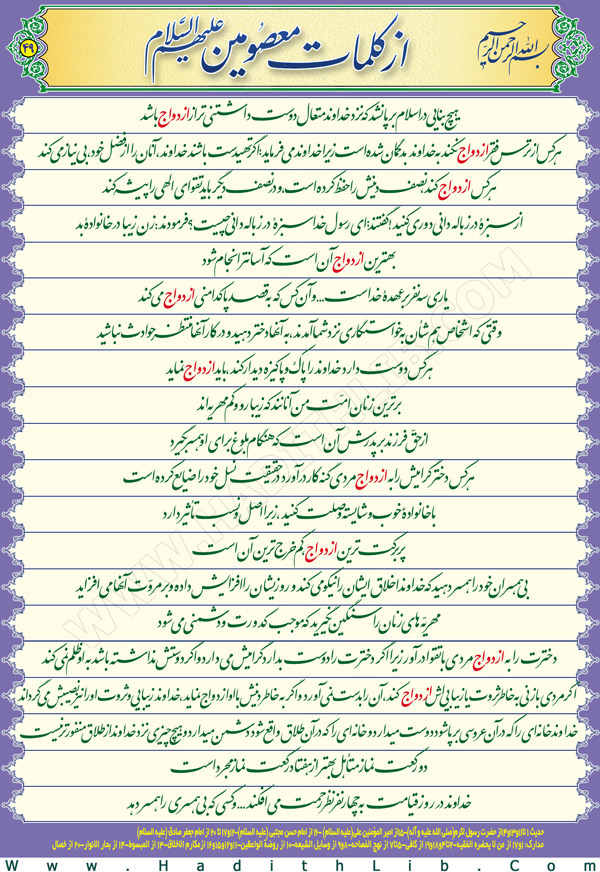 بسم الله الرحمن الرحیم
از کلمات معصومین علیهم السّلام
۴۹
هیچ بنایی در اسلام بر پا نشد که نزد خداوند متعال دوست داشتنی تر از ازدواج باشد
هر کس از ترس فقر ازدواج نکند به خداوند بدگمان شده است زیرا خداوند می فرماید: اگر تهیدست باشند خداوند، آنان را از فضل خود، بی نیاز می کند
هر کس ازدواج کند، نصف دینش را حفظ کرده است، و در نصف دیگر باید تقوای الهی را پیشه کند
از سبزۀ در زباله دانی دوری کنید! گفتند: ای رسول خدا سبزۀ در زباله دانی چیست؟ فرمودند: زن زیبا در خانوادۀ بد
بهترین ازدواج آن است که آسانتر انجام شود
یاری سه نفر بر عهدۀ خداست ... و آن کس که به قصد پاکدامنی ازدواج می کند
وقتی که اشخاص هم شأن به خواستگاری نزد شما آمدند، به آنها دختر دهید و در کار آنها منتظر حوادث نباشید
هر کس دوست دارد خداوند را پاک و پاکیزه دیدار کند، باید ازدواج نماید
برترین زنان امّت من آنانند که زیبارو و کم مهریه اند
از حقّ فرزند بر پدرش آن است که هنگام بلوغ برای او همسر گیرد
هر کس دختر گرامیش را به ازدواج مردی گنه کار در آورد در حقیقت نسل خود را ضایع کرده است
با خانوادۀ خوب و شایسته وصلت کنید، زیرا اصل و نسب تأثیر دارد
پر برکت ترین ازدواج کم خرج ترین آن است
بی همسران خود را همسر دهید که خداوند اخلاق ایشان را نیکو می کند و روزیشان را افزایش داده و بر مروّت آنها می افزاید
مهریّه های زنان را سنگین نگیرید که موجب کدورت و دشمنی می شود
دخترت را به ازدواج مردی با تقوا در آور زیرا اگر دخترت را دوست بدارد گرامیش می دارد و اگر دوستش نداشته باشد به او ظلم نمی کند
اگر مردی با زنی به خاطر ثروت یا زیبایی اش ازدواج کند، آن را بدست نمی آورد و اگر به خاطر دینش با او ازدواج نماید، خداوند زیبایی و ثروت او را نیز نصیبش می گرداند
خداوند خانه ای را که در آن عروسی بر پا شود دوست میدارد و خانه ای را که در آن طلاق واقع شود دشمن میدارد و هیچ چیزی نزد خداوند از طلاق منفورتر نیست
دو رکعت نماز متأهل بهتر از هفتاد رکعت نماز مجرد است
خداوند در روز قیامت به چهار نفر نظر رحمت می افکند ... و کسی که بی همسری را همسر دهد
WWW.HADITHLIB.COM
Www.HadithLib.Com